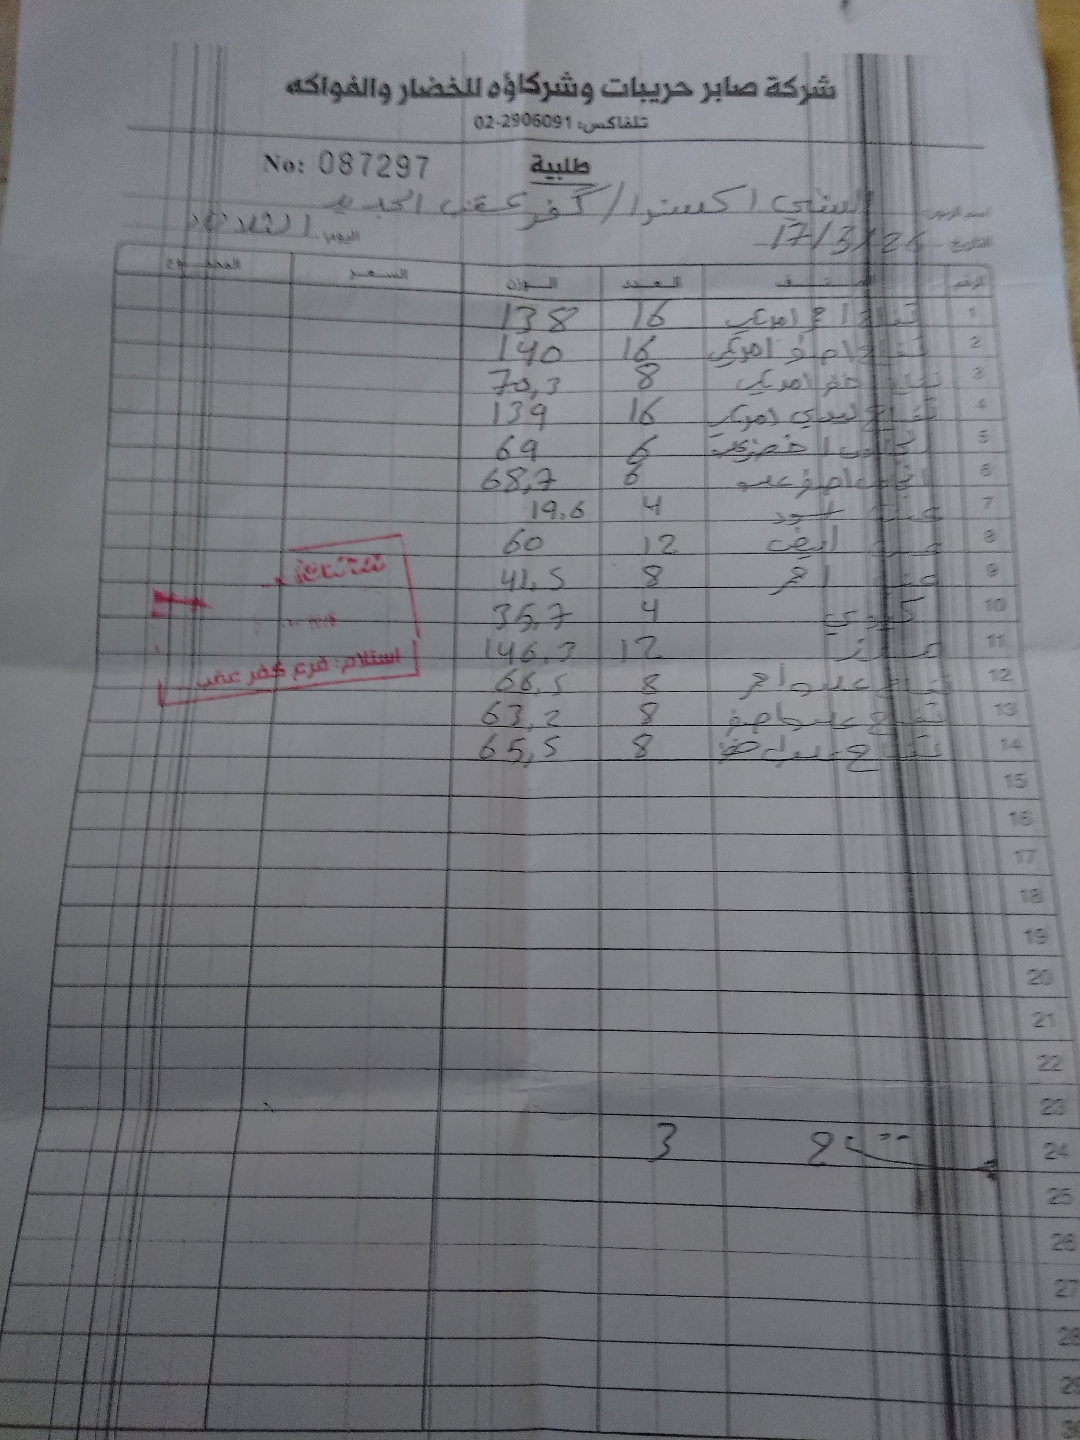 شركة صابر حريبات وشركاؤه للخضار والفواكه
تلفاكس: 02-2906091
No: 087297 طلبية
السني اكسترا / كفر عقب الجديد
التاريخ 17/3/26 اليوم الثلاثاء
الرقم الصنف العدد الوزن السعر المجموع
1 تفاح احمر امريكي 16 138
2 تفاح اصفر امريكي 16 140
3 تفاح اخضر امريكي 8 70,3
4 تفاح ليدي امريكي 16 139
5 6 69
6 6 68,7
7 عنب اسود 4 19.6
8 عنب ابيض 12 60
9 عنب احمر 8 41,5
10 4 35,7
11 موز 12 146.3
12 تفاح احمر 8 66,5
13 تفاح اصفر 8 63,2
14 تفاح اخضر 8 65,5
15
16
17
18
19
20
21
22
23
24 3
25
26
27
28
29
30
استلام: فرع كفر عقب